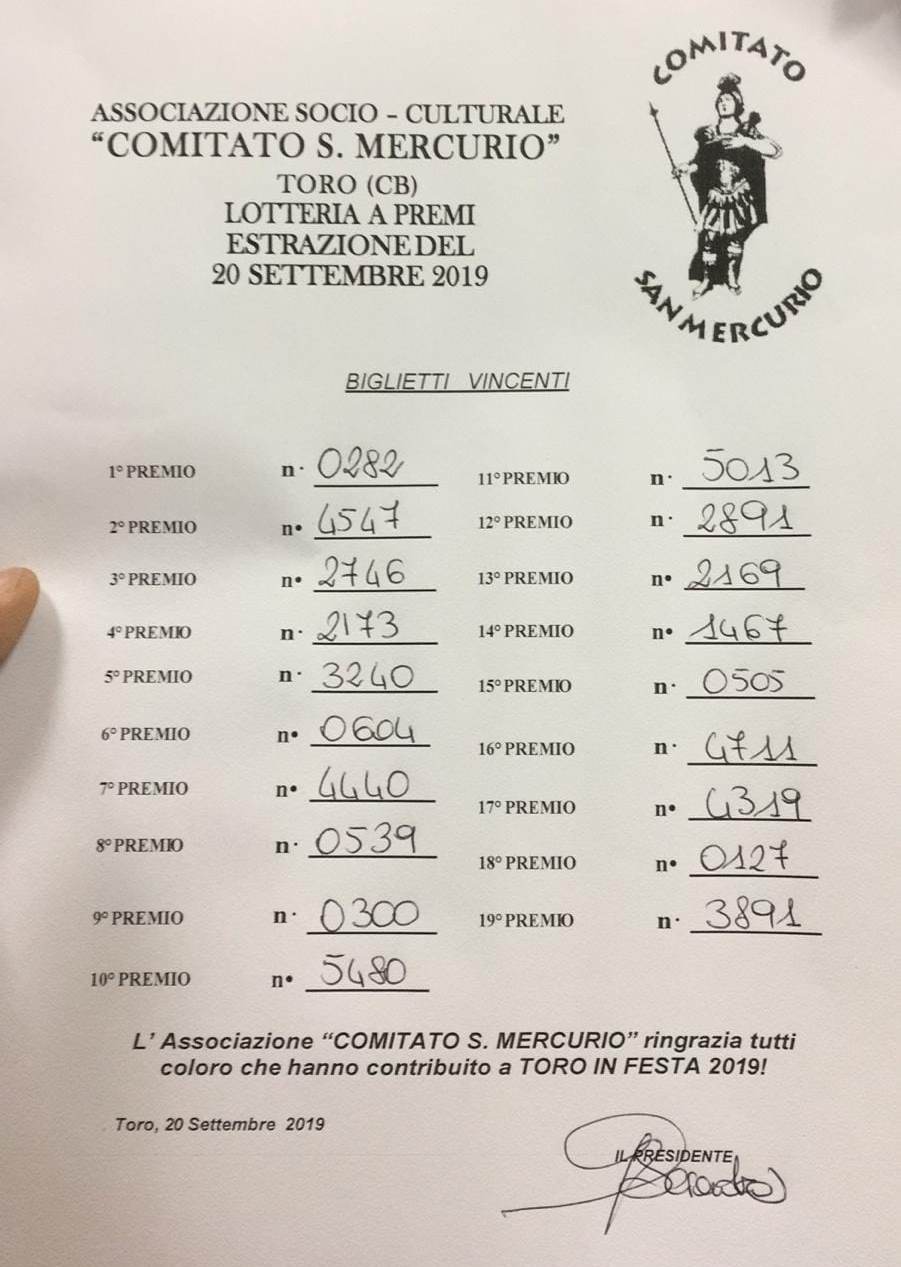 COMITATO
SAN MERCURIO
ASSOCIAZIONE SOCIO – CULTURALE
“COMITATO S. MERCURIO”
TORO (CB)
LOTTERIA A PREMI
ESTRAZIONE DEL
20 SETTEMBRE 2019
BIGLIETTI VINCENTI
1° PREMIO n· 0282
2° PREMIO n• 4547
3° PREMIO n• 2746
4° PREMIO n· 2173
5° PREMIO n· 3240
6° PREMIO n• 0604
7° PREMIO n• 4440
8° PREMIO n· 0539
9° PREMIO n· 0300
10° PREMIO n• 5480
11° PREMIO n· 5013
12° PREMIO n· 2891
13° PREMIO n• 2169
14° PREMIO n• 1467
15° PREMIO n· 0505
16° PREMIO n· 4711
17° PREMIO n• 4319
18° PREMIO n• 0127
19° PREMIO n· 3891
L’ Associazione “COMITATO S. MERCURIO” ringrazia tutti
coloro che hanno contribuito a TORO IN FESTA 2019!
Toro, 20 Settembre 2019
IL PRESIDENTE